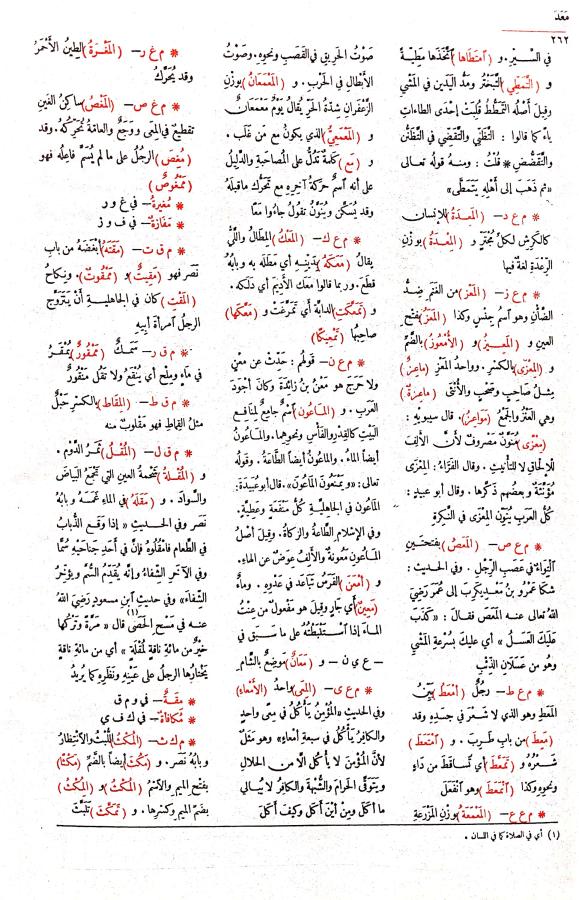 مَعَدَ
٢٦٢
في السَّيْر. و (امتَطاها) اتَّخَذَها مَطِيَّة
و (التَّمَطِّي) التَّبَخْتُر ومَدُّ اليَدَين في المَشْي
وقيل أَصْلُه التَّمَطُّطُ قُلِبَتْ إحْدَى الطاءَاتِ
ياءً كما قالوا : التَّظَنِّي والتَّقَضِّي في التَّظَنُّنِ
والتَّقَضُّضِ * قُلْتُ : ومنه قولُه تعالى
«ثم ذَهَبَ إلى أَهْلِهِ يَتَمَطَّى»
* م ع د – (المَعِدَةُ) للإنسانِ
كالكَرِشِ لكلِّ مُجْتَرٍّ و (المِعْدَةُ) بوزنِ
الرِّعْدَةِ لُغةٌ فيها
* م ع ز – (المَعْزُ) من الغَنَمِ ضِدُّ
الضَّأْنِ وهو اسمُ جِنْسٍ وكذا (المَعَزُ) بفتحِ
العينِ و (المَعِيـزُ) و (الأُمْعُوزُ) بالضَّمِّ
و (المِعْزَى) بالكسرِ . وواحدُ المَعْزِ (ماعِزٌ)
مِثلُ صاحِبٍ وصَحْبٍ والأُنْثَى (ماعِزةٌ)
وهي العَنْزُ والجَمْعُ (مَواعِزُ) . قال سيبويه :
(مِعْزًى) مُنَوَّنٌ مَصْرُوفٌ لأنَّ الأَلِفَ
للإلحاقِ لا للتأنيثِ . وقال الفَرَّاءُ : المِعْزَى
مُؤَنَّثَةٌ وبعضُهم ذَكَّرها . وقال أبو عبيد :
كلُّ العَرَبِ يُنَوِّنُ المِعْزَى في النَّكِرَةِ
* م ع ص – (المَعَصُ) بفتحتينِ
الْتِواءٌ في عَصَبِ الرِّجْلِ . وفي الحديث :
شَكَا عَمْرُو بنُ مَعْدِيكَرِبَ إلى عُمَرَ رَضِيَ
اللهُ تعالى عنه المَعَصَ فقالَ : «كَذَبَ
عَلَيْكَ العَسَلُ» أي عليكَ بسُرْعةِ المَشْيِ
وهُو من عَسَلانِ الذِّئْبِ
* م ع ط – رجُلٌ (أَمْعَطُ) بَيِّنُ
المَعَطِ وهو الذي لا شَعَرَ في جَسَدِه وقد
(مَعِطَ) من بابِ طَرِبَ . و (امْتَعَطَ)
شَعْرُه و (تَمَعَّطَ) أي تَسَاقَطَ من داءٍ
ونحوِه وكذا (انْمَعَطَ) وهو انْفَعَلَ
* م ع ع – (المَعْمَعَةُ) بوزنِ المَزْرَعةِ
صَوْتُ الحَرِيقِ في القَصَبِ ونحوِه . وصَوْتُ
الأبطالِ في الحَرْبِ . و (المَعْمَعانُ) بوزنِ
الزَّعْفَرانِ شِدَّةُ الحَرِّ يُقالُ يومٌ مَعْمَعانٌ
و (المَعْمَعِيُّ) الذي يكونُ مع مَن غَلَب .
و (مَعَ) كلمةٌ تَدُلُّ على المُصاحَبَةِ والدَّليلُ
على أنه اسمٌ حَرَكَةُ آخِرِه مع تَحَرُّكِ ماقبلَه
وقد يُسَكَّنُ ويُنَوَّنُ تقولُ جاءُوا مَعًا
* م ع ك – (المَعْكُ) المِطَالُ واللَّيُّ
يقالُ (مَعَكَهُ) بدَيْنِهِ أي مَطَلَه به وبابُهُ
قَطَعَ . وربما قالوا مَعَكَ الأَدِيمَ أي دَلَكَه .
و (تَمَعَّكَتِ) الدابَّةُ أي تَمَرَّغَتْ و (مَعَّكَها)
صاحِبُها (تَمْعِيكًا)
* م ع ن – قولُهم : حَدِّثْ عن مَعْنٍ
ولا حَرَجَ هو مَعْنُ بنُ زائدةَ وكانَ أجْودَ
العَرَبِ . و (الماعُونُ) اسمٌ جامِعٌ لمَنافِعِ
البَيْتِ كالقِدْرِ والفأْسِ ونحوِهما . والماعُونُ
أيضاً الماءُ . والماعونُ أيضاً الطَّاعَةُ . وقولُه
تعالى : «ويَمْنَعُونَ الماعُونَ» . قال أبو عُبَيدَةَ :
الماعُونُ في الجاهليةِ كلُّ مَنْفَعَةٍ وعَطِيَّةٍ .
وفي الإسلامِ الطَّاعَةُ والزكاةُ . وقيلَ أَصْلُ
الماعُونِ مَعُونَةٌ والأَلِفُ عِوَضٌ عن الهاءِ .
و (أَمْعَنَ) الفَرَسُ تَباعَدَ في عَدْوِه . وماءٌ
(مَعِينٌ) أي جارٍ وقيلَ هو مَفْعولٌ من عِنْتُ
الماءَ إذا اسْتَنْبَطْتَه على ما سَبَقَ في
– ع ي ن – و (مَعَانٌ) مَوْضِعٌ بالشَّامِ
* م ع ى – (المِعَى) واحدُ (الأَمْعاءِ)
وفي الحديثِ «المُؤْمِنُ يَأْكُلُ في مِعًى واحدٍ
والكافرُ يَأْكُلُ في سبعةِ أمعاءٍ» وهو مَثَلٌ
لأنَّ المُؤْمِنَ لا يَأْكُلُ الَّا من الحلالِ
ويَتَوَقَّى الحَرامَ والشُّبْهَةَ والكافِرُ لا يُبالي
ما أكلَ ومِنْ أيْنَ أكلَ وكيفَ أكلَ
* م غ ر – (المَغَرَةُ) الطِينُ الأَحْمَرُ
وقد يُحَرَّكُ
* م غ ص – (المَغْصُ) ساكنُ الغَيْنِ
تَقْطِيعٌ في المِعَى ووَجَعٌ والعامَّةُ تُحَرِّكُه . وقد
(مُغِصَ) الرجُلُ على ما لم يُسَمَّ فاعلُه فهو
(مَمْغُوصٌ)
* مُغِيرةُ – في غ و ر
* مَفَازةٌ – في ف و ز
* م ق ت – (مَقَتَهُ) أبْغَضَهُ من بابِ
نَصَر فهو (مَقِيتٌ) و (مَمْقُوتٌ) . ونِكاحُ
(المَقْتِ) كان في الجاهليةِ أنْ يَتَزَوَّجَ
الرجلُ امرأةَ أبِيهِ
* م ق ر – سَمَكٌ (مَمْقُورٌ) يُمْقَرُ
في ماءٍ ومِلْحٍ أي يُنْقَعُ ولا تَقُلْ مَنْقُورٌ
* م ق ط – (المِقَاطُ) بالكسرِ حَبْلٌ
مِثلُ القِماطِ فهو مَقْلوبٌ منه
* م ق ل – (المُقْلُ) ثَمَرُ الدَّوْمِ .
و (المُقْلةُ) شَحْمةُ العينِ التي تَجْمَعُ البَياضَ
والسَّوادَ . و (مَقَلَهُ) في الماءِ غَمَسَهُ وبابُهُ
نَصَر وفي الحديثِ «إذا وَقَعَ الذُّبابُ
في الطَّعامِ فامْقُلُوه فإنَّ في أَحَدِ جَناحَيْهِ سُمًّا
وفي الآخَرِ الشِّفاءَ وإنَّه يُقَدِّمُ السُّمَّ ويُؤَخِّرُ
الشِّفاءَ» وفي حديثِ ابنِ مسعودٍ رَضِيَ اللهُ
عنه في مَسْحِ الحَصَى (١) قال «مَرَّةً وتَرْكُها
خيرٌ من مائةِ ناقةٍ لمُقْلَةٍ» أي من مائةِ ناقةٍ
يَخْتارُها الرجلُ على عَيْنِهِ ونَظَرِهِ كما يُريدُ
* مِقَةٌ – في و م ق
* مُكافأةٌ – في ك ف ي
* م ك ث – (المُكْثُ) اللُّبْثُ والانْتِظارُ
وبابُهُ نَصَر . و (مَكُثَ) أيضاً بالضَّمِّ (مَكْثًا)
بفتحِ الميمِ والاسمُ (المُكْثُ) و (المِكْثُ)
بضمِّ الميمِ وكسرِها . و (تَمَكَّثَ) تَلَبَّثَ
(١) أي في الصلاة كما في اللسان .